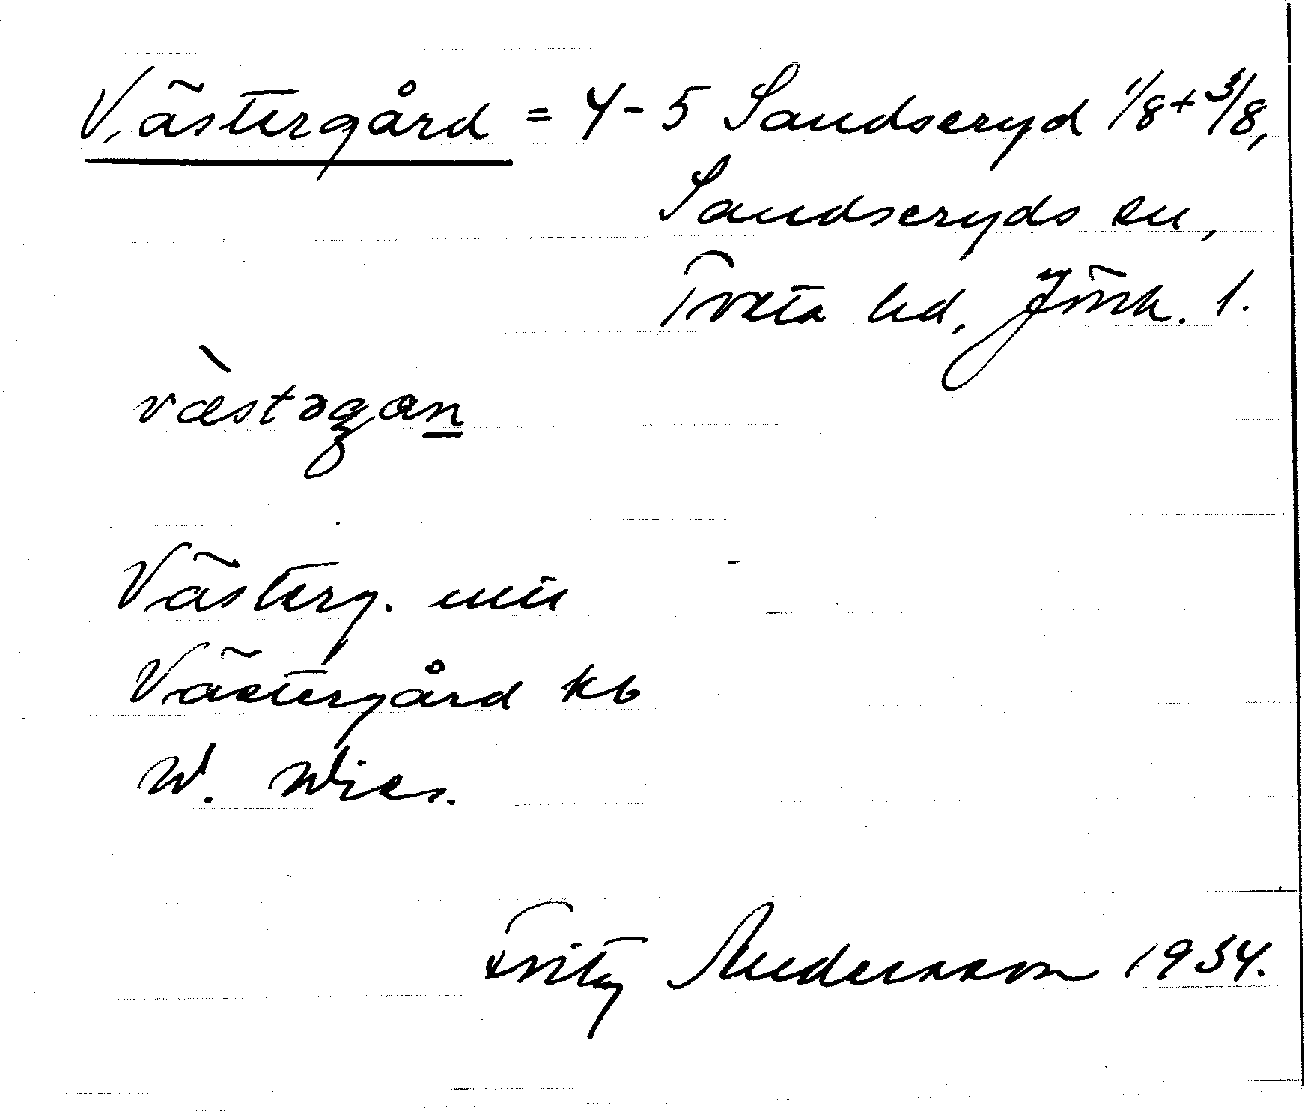 Västergård = 4-5 Sandseryd 1/8+3/8,
Sandseryds sn,
Tveta hd, Jönk. l.
væ̀stəgan
Västerg. mtl
Västergård kb
W. Wies.
Fritz Andersson 1934.